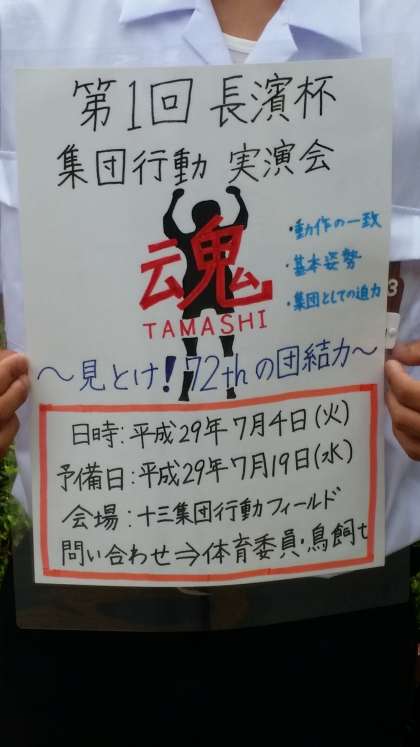 第1回 長濱杯
集団行動 実演会
魂
TAMASHI
・動作の一致
・基本姿勢
・集団としての迫力
～見とけ!72thの団結力～
日時:平成29年7月4日(火)
予備日:平成29年7月19日(水)
会場:十三集団行動フィールド
問い合わせ⇒体育委員・鳥飼t
3